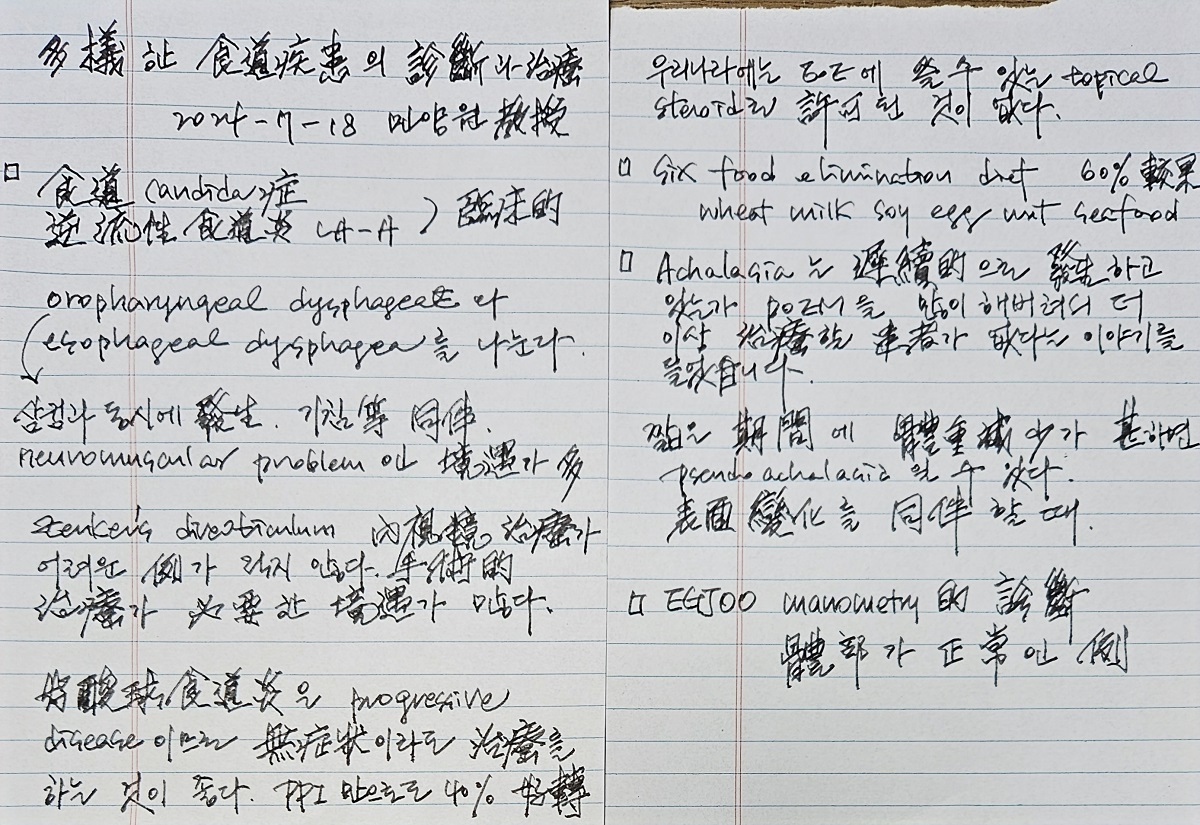 多樣한 食道疾患의 診斷과 治療
2024-7-18 민양원 敎授
食道 candida症
逆流性 食道炎 LA-A ) 臨床的
oropharyngeal dysphagea와
esophageal dysphagea를 나눈다.
삼킴과 동시에 發生. 기침等 同伴.
neuromuscular problem인 境遇가 多
Zenker's diverticulum 內視鏡 治療가
어려운 例가 적지 않다. 手術的
治療가 必要한 境遇가 많다.
好酸球 食道炎은 progressive
disease이므로 無症狀이라도 治療를
하는 것이 좋다. PPI 만으로도 40% 好轉
우리나라에는 EoE에 쓸 수 있는 topical
steroid로 許可된 것이 없다.
Six food elimination diet 60% 效果
wheat milk soy egg nut seafood
Achalasia는 連續的으로 發生하고
있는가 POEM을 많이 해버려서 더
이상 治療할 患者가 없다는 이야기를
들었습니다.
짧은 期間에 體重減少가 甚하면
pseudoachalasia일 수 있다.
表面變化를 同伴할 때.
EGJOO manometry的 診斷
體部가 正常인 例